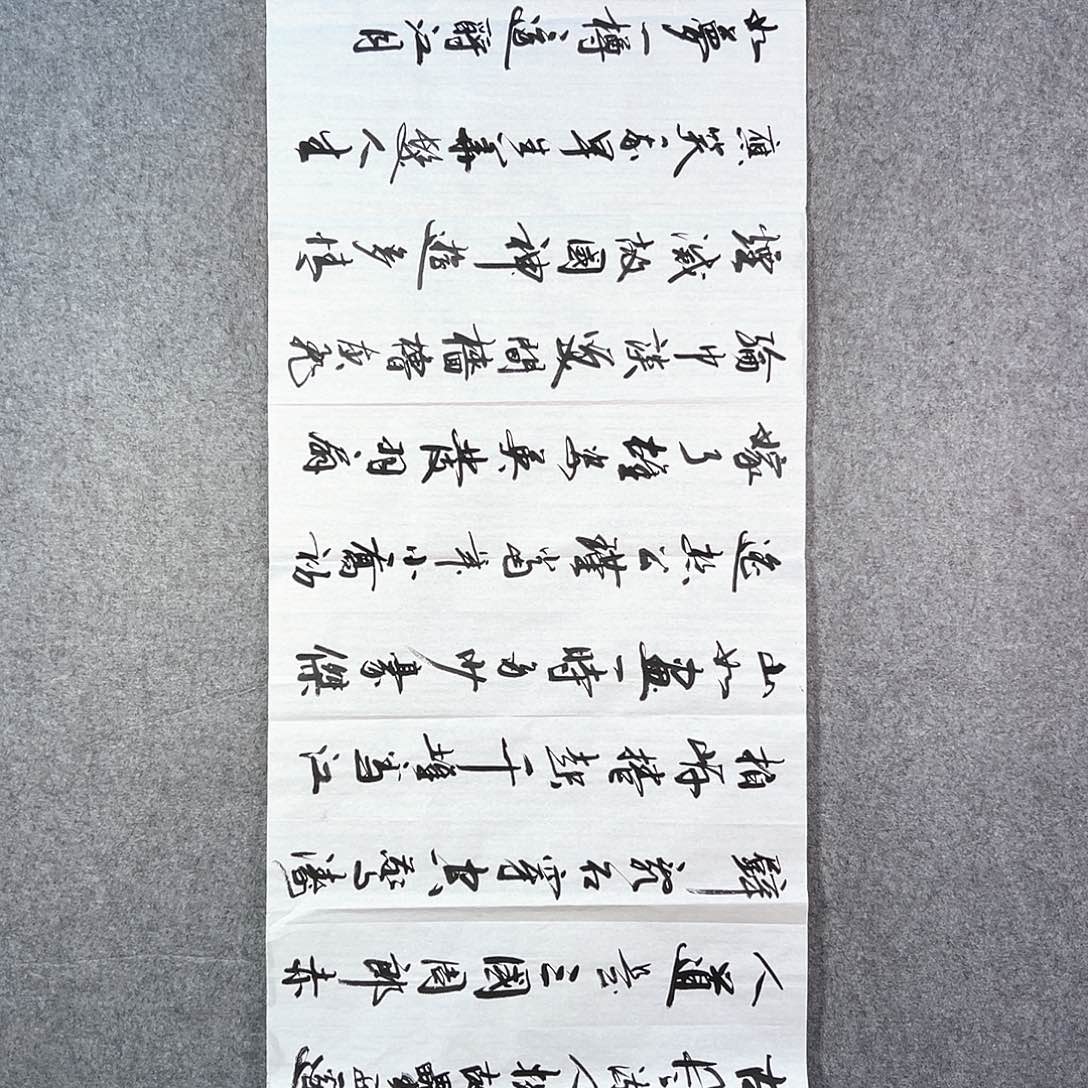 古風流人物故壘西邊
人道是三國周郎赤
壁亂石穿空驚濤
拍岸捲起千堆雪江
山如畫一時多少豪傑
遙想公瑾當年小喬初
嫁了雄姿英發羽扇
綸巾談笑間檣櫓灰飛
煙滅故國神遊多情
應笑我早生華髮人生
如夢一樽還酹江月